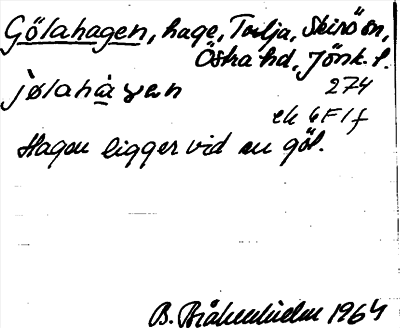 Gölahagen, hage, Torlja, Skirö sn,
Östra hd, Jönk. l.
jø̀lahàgan
274
ek 6F1f
Hagen ligger vid en göl.
B. 1964